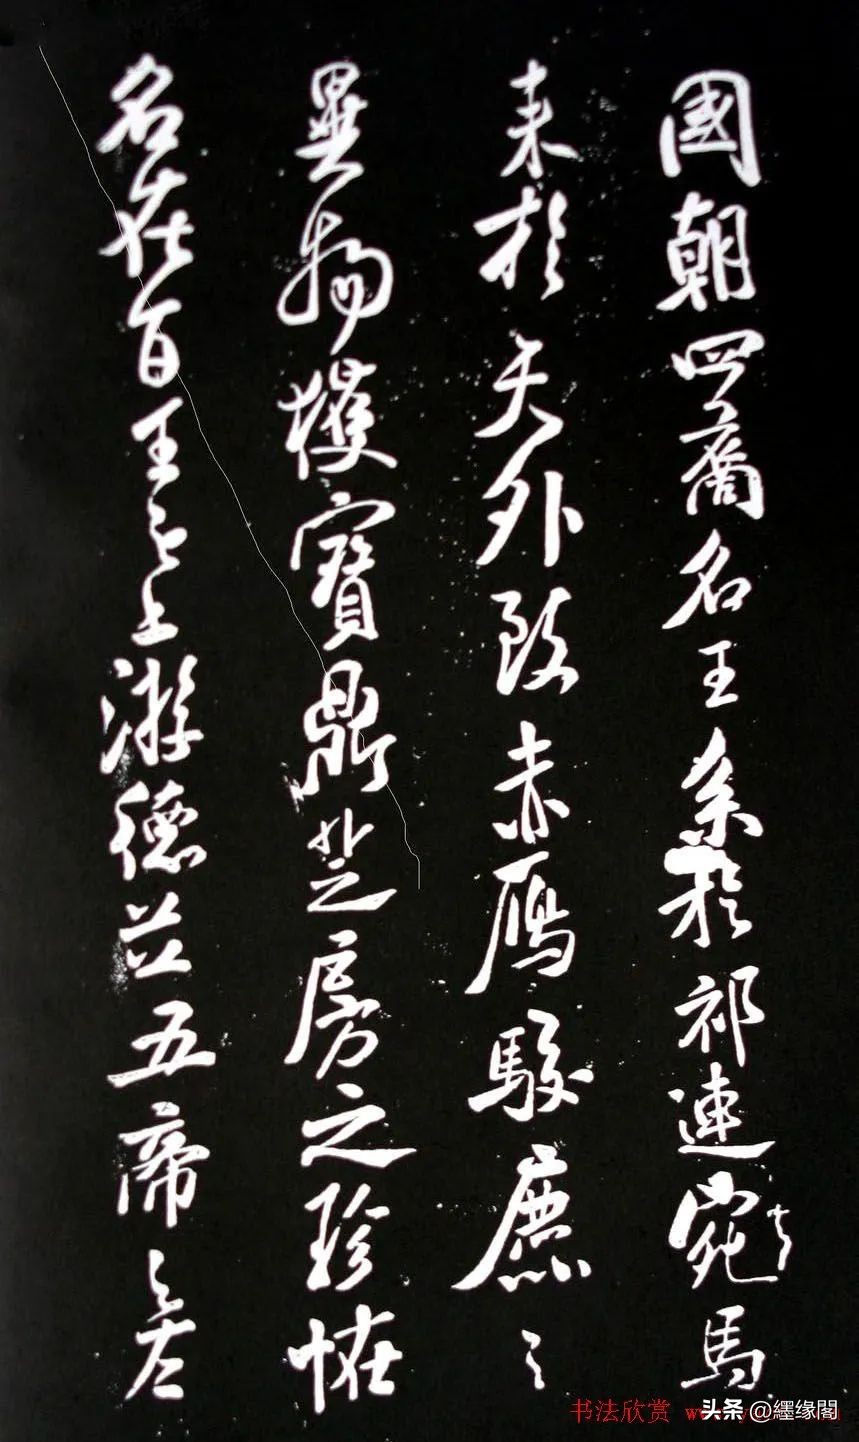 國朝四裔名王系於祁連宛馬
来於天外致赤雁駮麃之
異物獲寶鼎芝房之珍怪
名在百王之上游德並五帝之
书法欣赏
头条 @纆缘閣